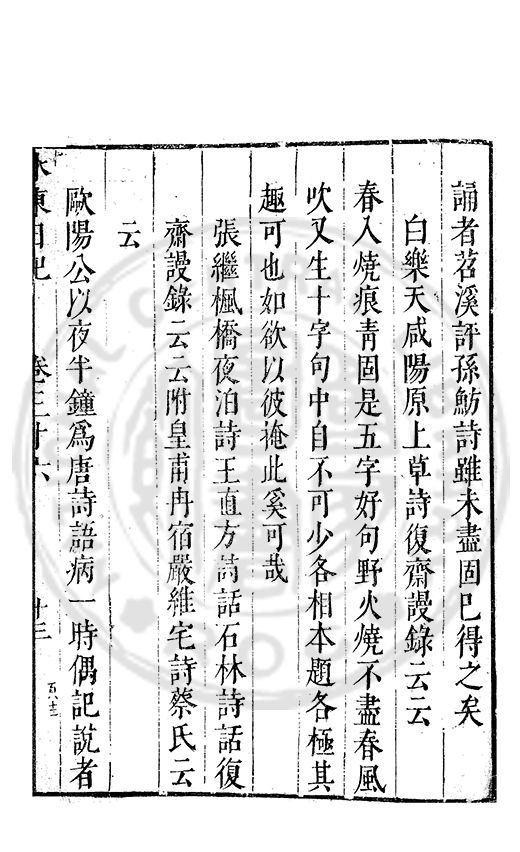 誦者苕溪評孫魴詩雖未盡固已得之矣
白樂天咸陽原上草詩復齋謾錄云云
春入燒痕靑固是五字好句野火燒不盡春風
吹又生十字句中自不可少各相本題各極其
趣可也如欲以彼掩此奚可哉
張繼楓橋夜泊詩王直方詩話石林詩話復
齋謾錄云云附皇甫冉宿嚴維宅詩蔡氏云
云
歐陽公以夜半鐘爲唐詩語病一時偶記說者
水東日記 卷三十六 十三